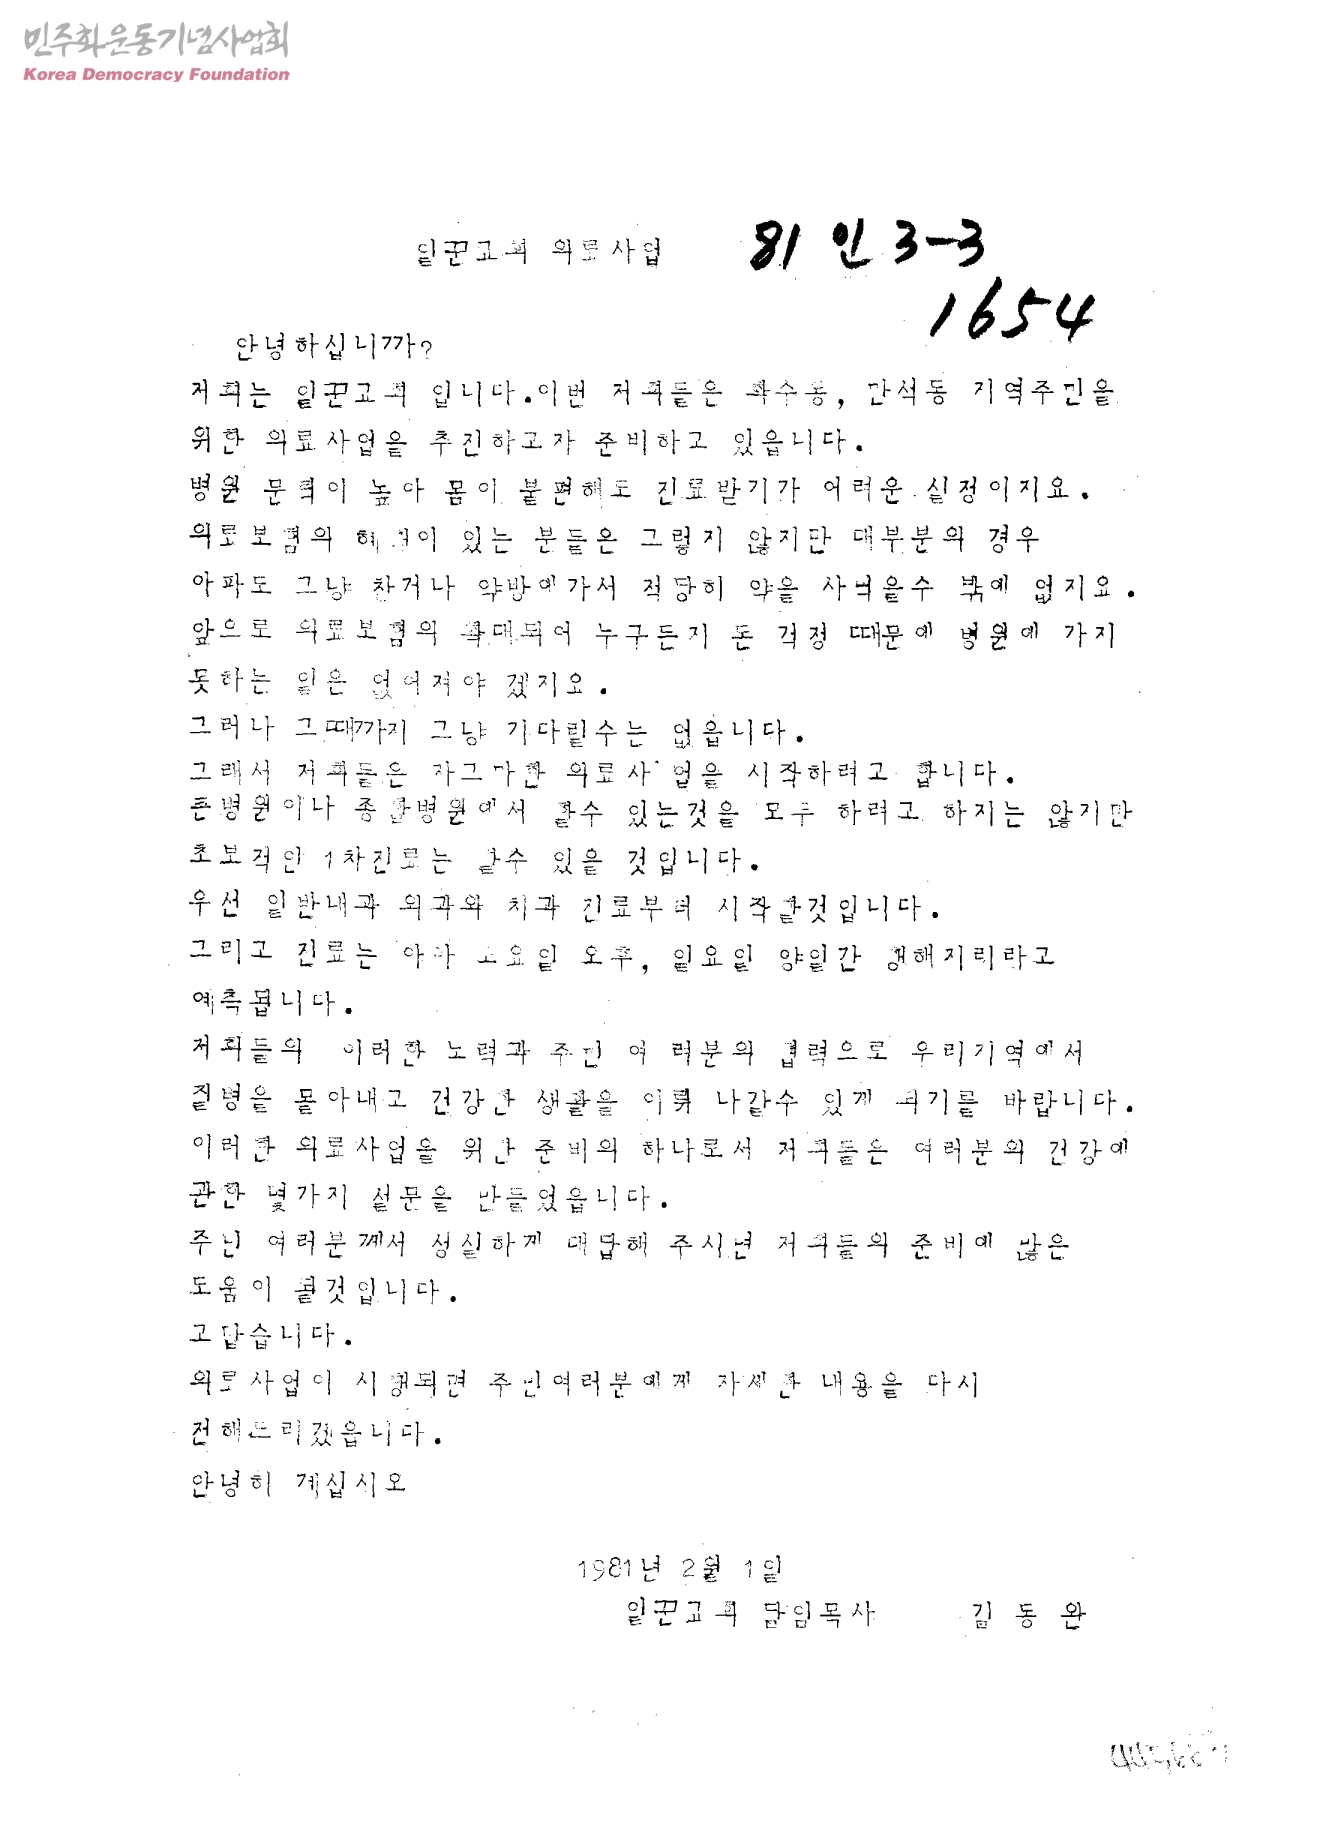 민주화운동기념사업회
Korea Democracy Foundation
일꾼교회 의료사업
81 인 3-3
1654
안녕하십니까?
저희는 일꾼교회 입니다.이번 저희들은 화수동, 만석동 지역주민을
위한 의료사업을 추진하고자 준비하고 있읍니다.
병원 문턱이 높아 몸이 불편해도 진료받기가 어려운 실정이지요.
의료보험의 혜택이 있는 분들은 그렇지 않지만 대부분의 경우
아파도 그냥 참거나 약방에가서 적당히 약을 사먹을수 밖에 없지요.
앞으로 의료보험의 확대되어 누구든지 돈 걱정 때문에 병원에 가지
못하는 일은 없어져야 겠지요.
그러나 그때까지 그냥 기다릴수는 없읍니다.
그래서 저희들은 자그마한 의료사업을 시작하려고 합니다.
큰병원이나 종합병원에서 할수 있는것을 모두 하려고 하지는 않지만
초보적인 1차진료는 할수 있을 것입니다.
우선 일반내과 외과와 치과 진료부터 시작할것입니다.
그리고 진료는 아마 토요일 오후, 일요일 양일간 행해지리라고
예측됩니다.
저희들의 이러한 노력과 주민 여 러분의 협력으로 우리지역에서
질병을 몰아내고 건강한 생활을 이뤄 나갈수 있게 되기를 바랍니다.
이러한 의료사업을 위한 준비의 하나로서 저희들은 여러분의 건강에
관한 몇가지 설문을 만들었읍니다.
주민 여러분께서 성실하게 대답해 주시면 저희들의 준비에 많은
도움이 될것입니다.
고맙습니다.
의료사업이 시행되면 주민여러분에게 자세한 내용을 다시
전해드리겠읍니다.
안녕히 계십시오
1981년 2월 1일
일꾼교회 담임목사 김 동 완